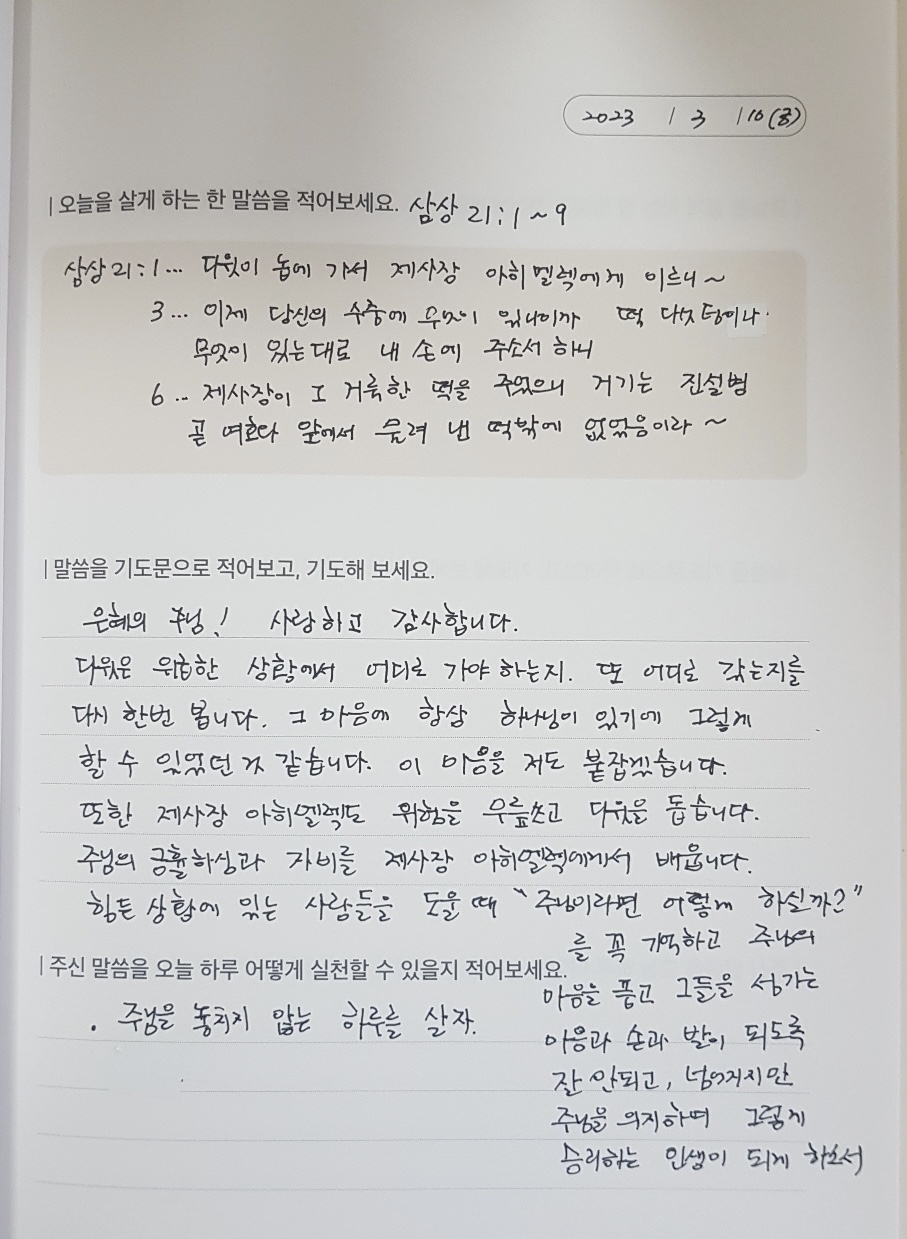 2023 / 3 / 10 (금)
| 오늘을 살게 하는 한 말씀을 적어보세요. 삼상 21:1~9
삼상21:1... 다윗이 놉에 가서 제사장 아히멜렉에게 이르니~
3... 이제 당신의 수중에 무엇이 있나이까 떡 다섯 덩이나
무엇이 있는대로 내 손에 주소서 하니
6... 제사장이 그 거룩한 떡을 주었으니 거기는 진설병
곧 여호와 앞에서 물려 낸 떡밖에 없었음이라~
| 말씀을 기도문으로 적어보고, 기도해 보세요.
은혜의 주님! 사랑하고 감사합니다.
다윗은 위급한 상황에서 어디로 가야 하는지. 또 어디로 갔는지를
다시 한번 봅니다. 그 마음에 항상 하나님이 있기에 그렇게
할 수 있었던 것 같습니다. 이 마음을 저도 붙잡겠습니다.
또한 제사장 아히멜렉도 위험을 무릎쓰고 다윗을 돕습니다.
주님의 긍휼하심과 자비를 제사장 아히멜렉에게서 배웁니다.
힘든 상황에 있는 사람들을 도울 때 "주님이라면 어떻게 하실까?"
를 꼭 기억하고 주님의
마음을 품고 그들을 섬기는
마음과 손과 발이 되도록
잘 안되고, 넘어지지만
주님을 의지하며 그렇게
승리하는 인생이 되게 하소서
| 주신 말씀을 오늘 하루 어떻게 실천할 수 있을지 적어보세요.
. 주님을 놓치지 않는 하루를 살자.